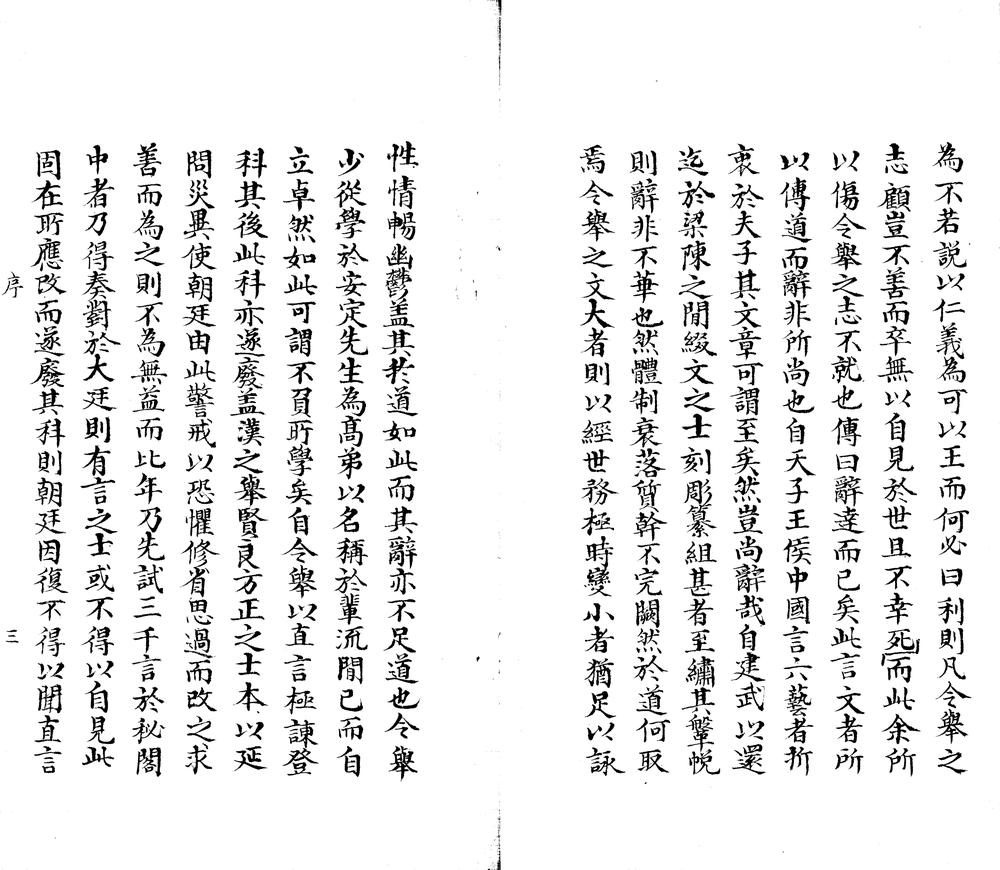 為不若説以仁義為可以王而何必曰利則凡令舉之
志顧豈不善而卒無以自見於世且不幸死而此余所
以傷令舉之志不就也傳曰辭達而已矣此言文者所
以傳道而辭非所尚也自天子王侯中國言六藝者折
衷於夫子其文章可謂至矣然豈尚辭哉自建武以還
迄於梁陳之閒綴文之士刻彫纂組甚者至繡其鞶帨
則辭非不華也然體制衰落質幹不完闕然於道何取
焉令舉之文大者則以經世務極時變小者猶足以詠
性情暢幽鬱盖其於道如此而其辭亦不足道也令舉
少從學於安定先生為髙弟以名稱於輩流閒已而自
立卓然如此可謂不負所學矣自令舉以直言極諫登
科其後此科亦遂廢盖漢之舉賢良方正之士本以延
問災異使朝廷由此警戒以恐懼修省思過而改之求
善而為之則不為無益而比年乃先試三千言於秘閣
中者乃得奏對於大廷則有言之士或不得以自見此
固在所應改而遂廢其科則朝廷因復不得以聞直言
序
三